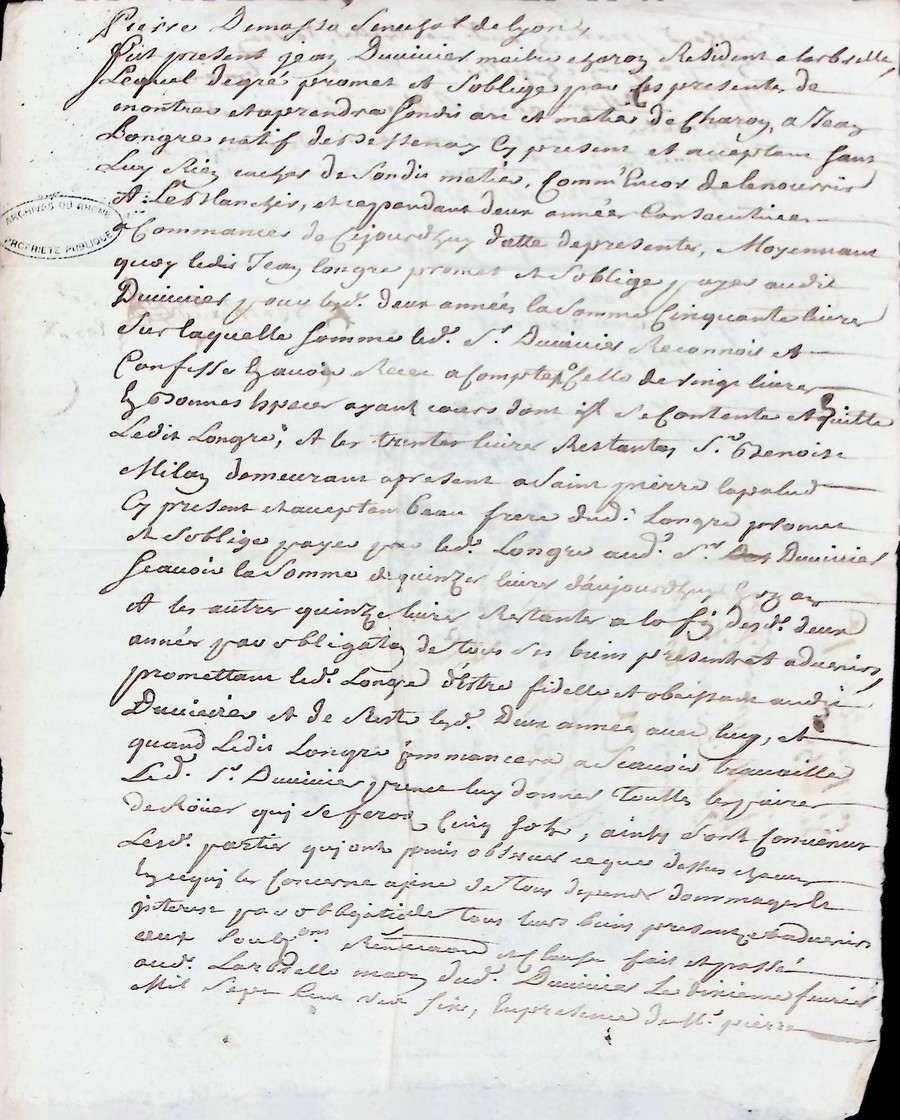 Pierre Demasso Seneschal de Lyon,
fut present jean Duvivier maitre charon Resident a larbrelle,
Lequel de gré promet et s'oblige par ces presentes de
montrer et aprendre sondit art et metié de Charon, a Jean
Longre natif de Bessenay Cy present et acceptant sans
Luy Rien cacher de sondit metié, Comm'Encor de le nourrir
Et Le Blanchir, et ce pendant deux année Consecutives
a Commancer de Cejourd'huy datte des presentes, Moyennant
quoy ledit Jean longre promet et s'oblige payer audit
Duvivier pour lesd. deux années la somme Cinquante livres
sur laquelle somme led. Sr. Duvivier Reconnois et
Confesse havoir Receu acompte Celle de vingt livres
En bonnes Espaces ayant cours dont il se Contente et quitte
Ledit Longre, et les trentes livres Restantes Sr. Benoist
Milan demeurant a present a Saint pierre lapalud
Cy present et acceptan beau frere dud. Longre promet
et s'oblige payer pour led. Longre aud. Sr. Duvivier
scavoir la somme de quinzes livres d'aujourd'huy En un an
et les autres quinze livres Restantes a la fin desd. deux
année par obligaton de tous ses biens presents et advenirs,
promettant led. Longre d'Estre fidelle et obeissant audit
Duvivier et de Rester lesd. Deux année avec luy, et
quand Ledit Longre Commancera a scavoir travaillé
Led. Sr. Duvivier promet luy donner Toutes les paires
de Roües qui se feron Cinq sols, ainsy sont Convenus
Lesd. parties qui ont promis observer ce que dessus chacun
En ce qui les Concerne a peine de tous depends dommages et
interest par obligation de tous leurs biens presents et advenirs
avec Soubzons Renonciaon et Clause fait et passé
aud. Larbrelle maison dud. Duvivier Le vinieme fevrier
Mil Sept Cent dix six, En presence de Me. pierre
ARCHIVES DU RHONE
PROPRIETE PUBLIQUE